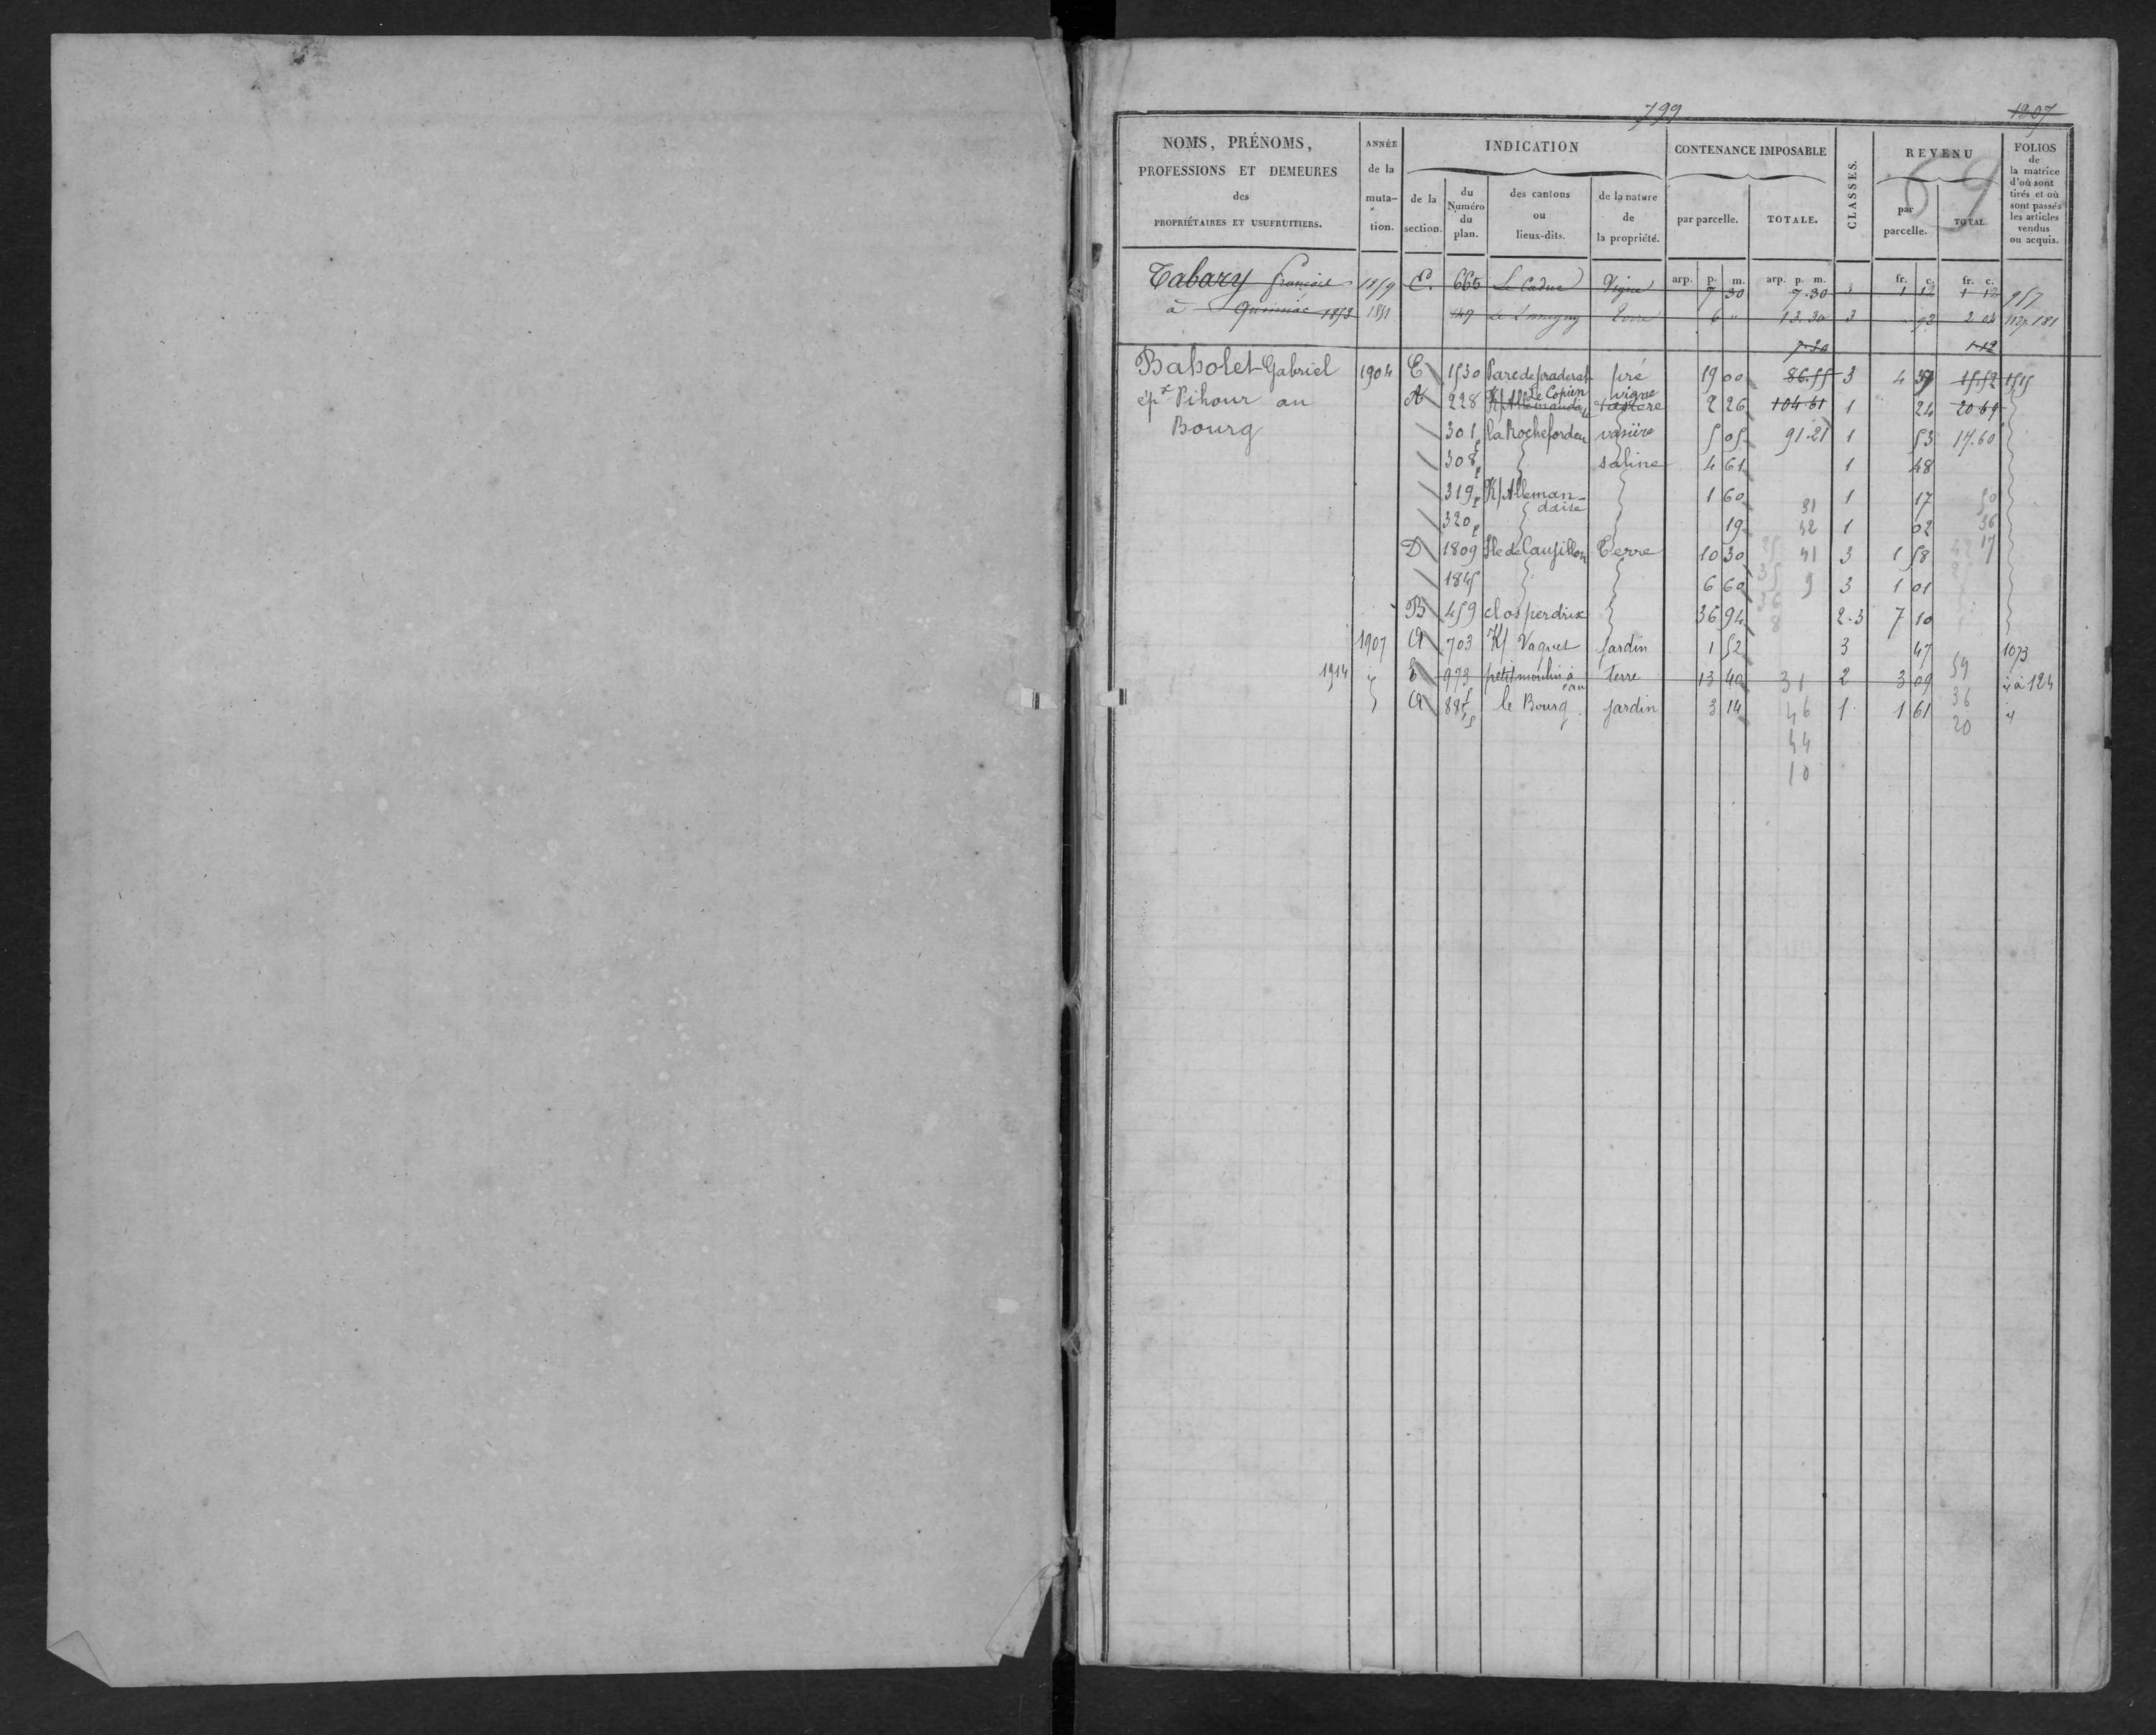 799
1207
59
NOMS, PRÉNOMS, PROFESSIONS ET DEMEURES des PROPRIÉTAIRES ET USUFRUITIERS.
ANNÉE de la muta-tion.
INDICATION
de la section.
du Numéro du plan.
des cantons ou lieux-dits.
de la nature de la propriété.
CONTENANCE IMPOSABLE
par parcelle.
TOTALE.
CLASSES.
REVENU
par parcelle.
TOTAL.
FOLIOS de la matrice d'où sont tirés et où sont passés les articles vendus ou acquis.
arp. p. m. arp. p. m. fr. c. fr. c.
Tabary françois 1859 E. 665 Le Cadue Vigne 7 30 7.30 3 1 12 1 12 957
à Quimiac 1853 1851 Terre 6 " 13.30 3 " 92 2 04 181
7.30 1.12
Baholet Gabriel 1904 E 1530 Parc de praderat pré 19 00 86.55 3 4 37 15.52 1515
ép.x Pihour au A 228 K/Allemandes Le Copien vigne 2 26 104.61 1 24 20.69
Bourg 301p la Rocheforden vasière 5 05 91.21 1 53 17.60
308p saline 4 61 1 48
319p K/Alleman-daise 1 60 1 17
320p 19 1 02
D 1809 Ile de Caufillon Terre 10 30 3 1 58
1845 6 60 3 1 01
B 459 clos perdrix 36 94 2.3 7 10
1907 A 703 K/ Vaquet jardin 1 52 3 47 1073
1914 E 973 petit moulin à eau terre 13 40 2 3 09 à 124
A 885p le Bourg jardin 3 14 1 1 61 "
31
42
41
9
8
50
36
17
31
46
44
10
59
36
20